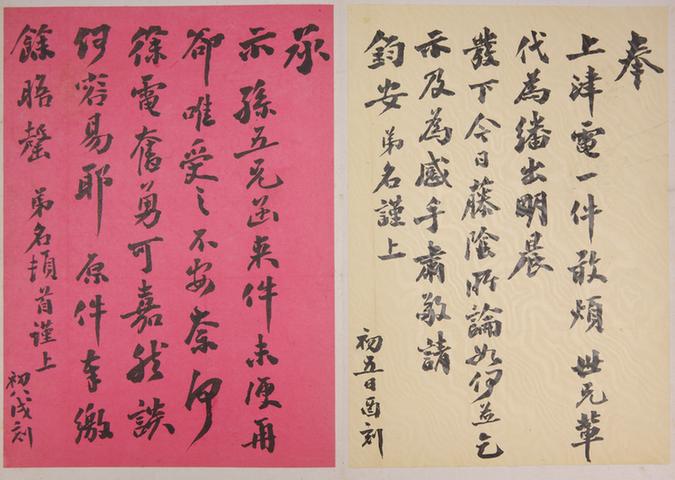 奉
上津電一件敢煩 世兄輩
代為繙出明晨
發下今日藤陰所論如何并乞
示及為感手肅敬請
鈞安 弟名謹上
初五日酉刻
承
示孫五兄函来件未便再
卻唯受之不安奈何
徐電奮勇可嘉然談
何容易耶 原件奉繳
餘晤罄 弟名頓首謹上
初八戌刻